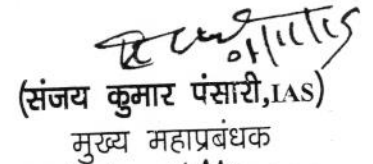 01/11/15
(संजय कुमार पंसारी,IAS)
मुख्य महाप्रबंधक